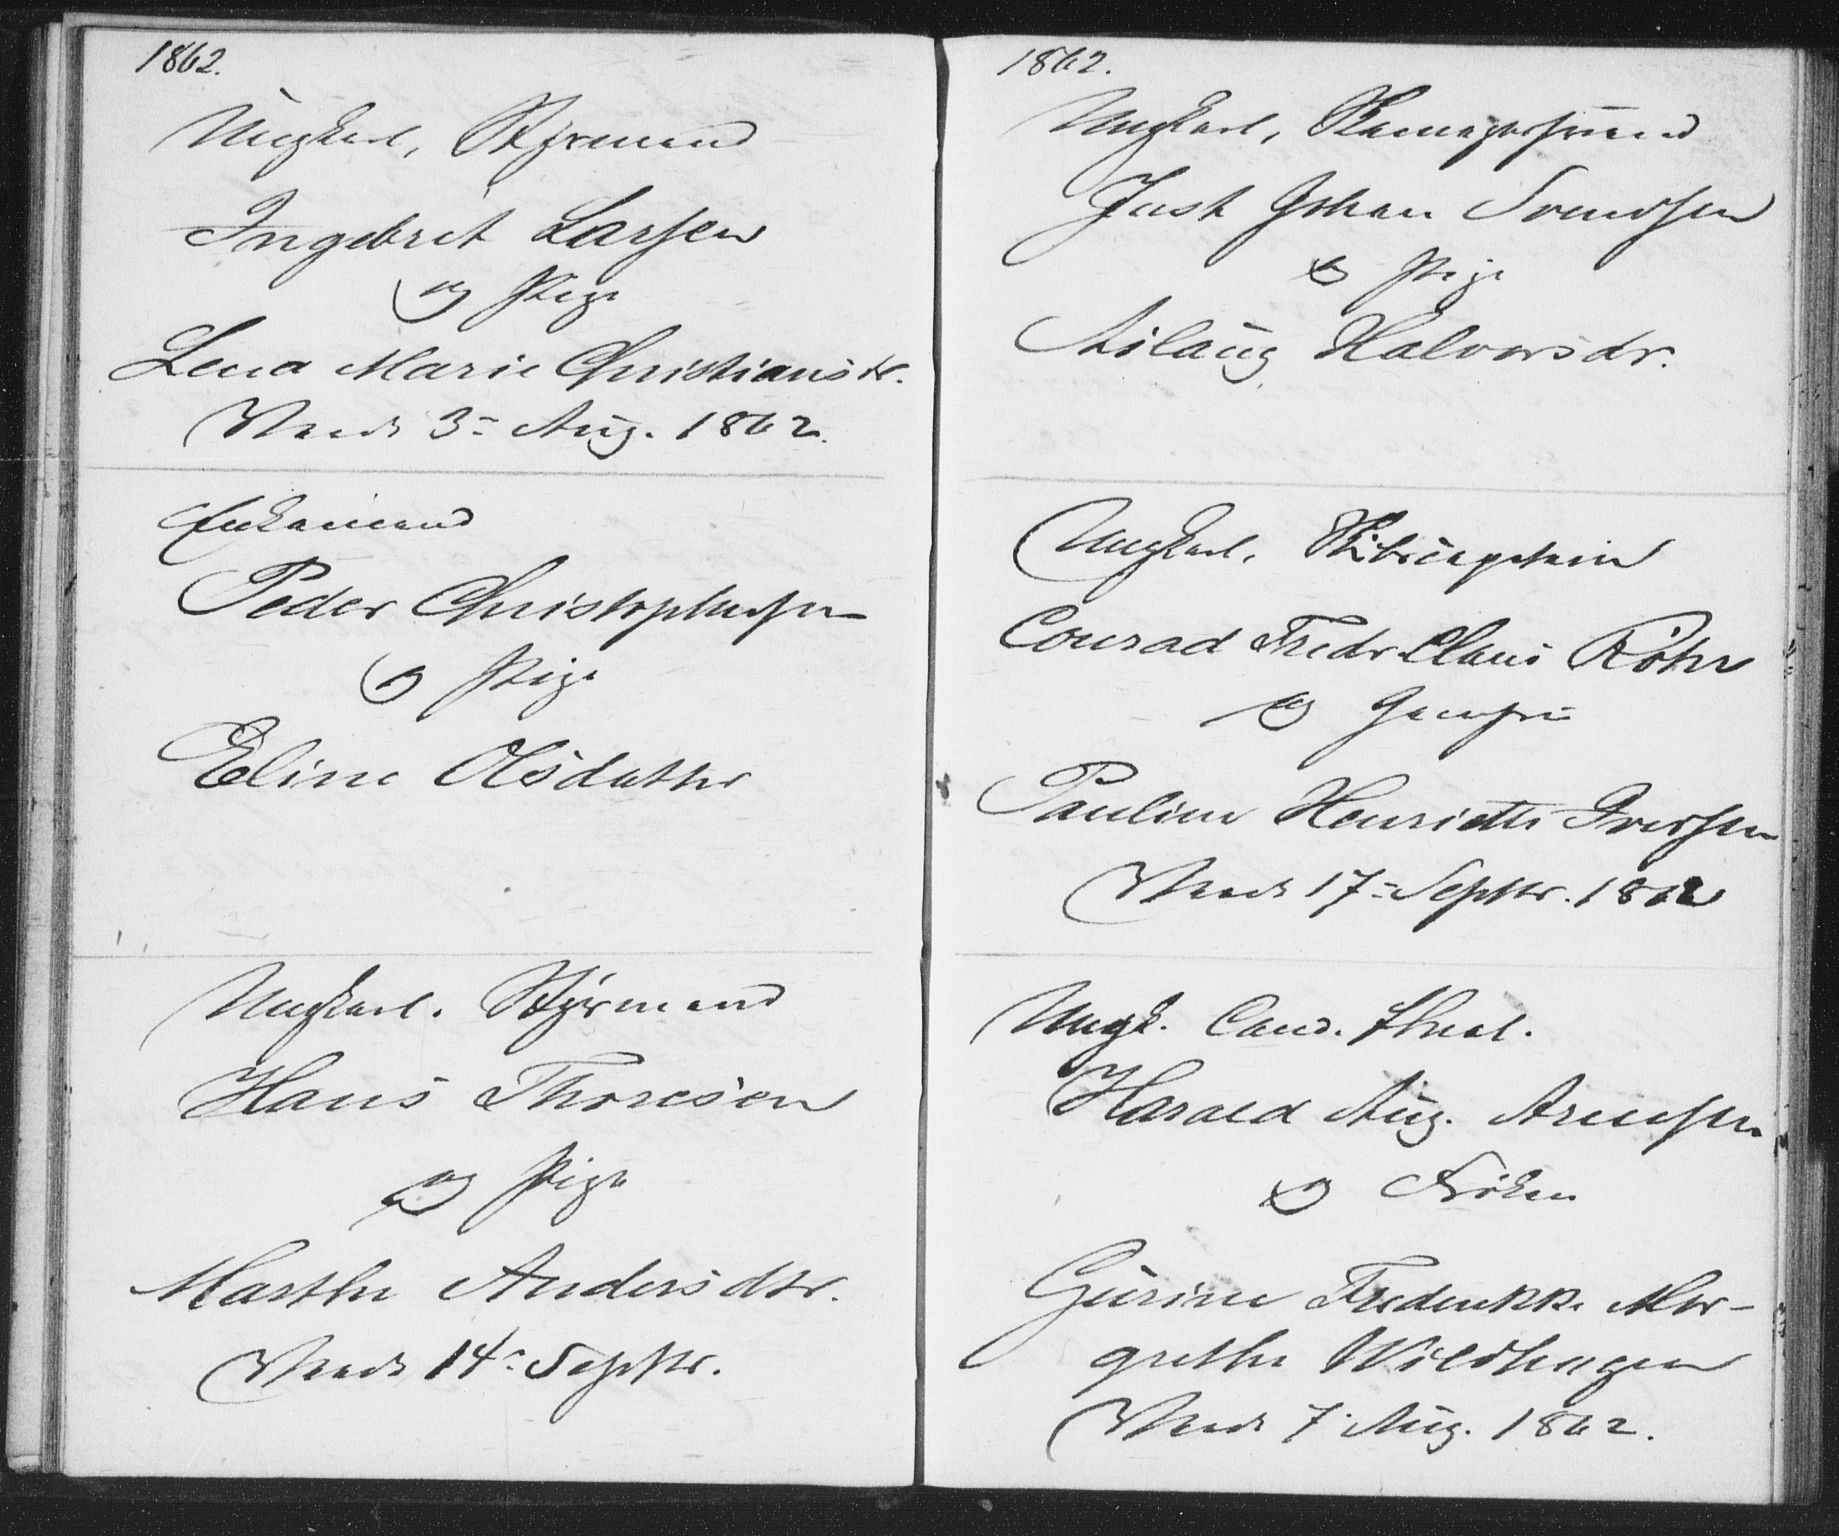 1862.
Ungkarl, Styrmand
Ingebret Larsen
og Pige
Lena Marie Christiansdr.
Viede 3= Aug. 1862.
Enkemand
Peder Christophersen
og Pige
Eline Olsdatter
Ungkarl. Styrmand
Hans Thoresen
og Pige
Marthe Andersdtr.
Viede 14= Septbr.
1862.
Ungkarl,
Just Johan Svendsen
og Pige
Aslaug Halvorsdr.
Ungkarl. Skibscaptein
Conrad Fredr. Claus Röhr
og Jomfru
Pauline Henriette Iversen
Viede 17= Septbr. 1862
Ungk. Cand. theol.
Harald Aug. Arnesen
og Frøken
Gurine Frederikke Mar-
grethe Wildhagen
Viede 7. Aug. 1862.